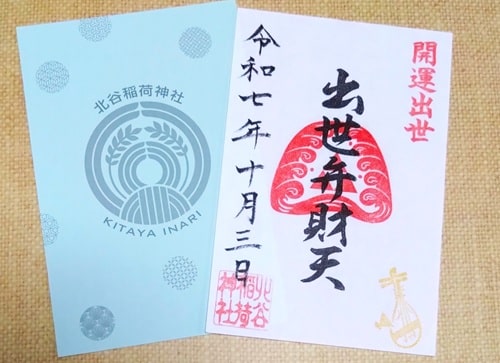 北谷稲荷神社
KITAYA INARI
開運出世
出世弁財天
令和七年十月三日
北谷
稲荷
神社